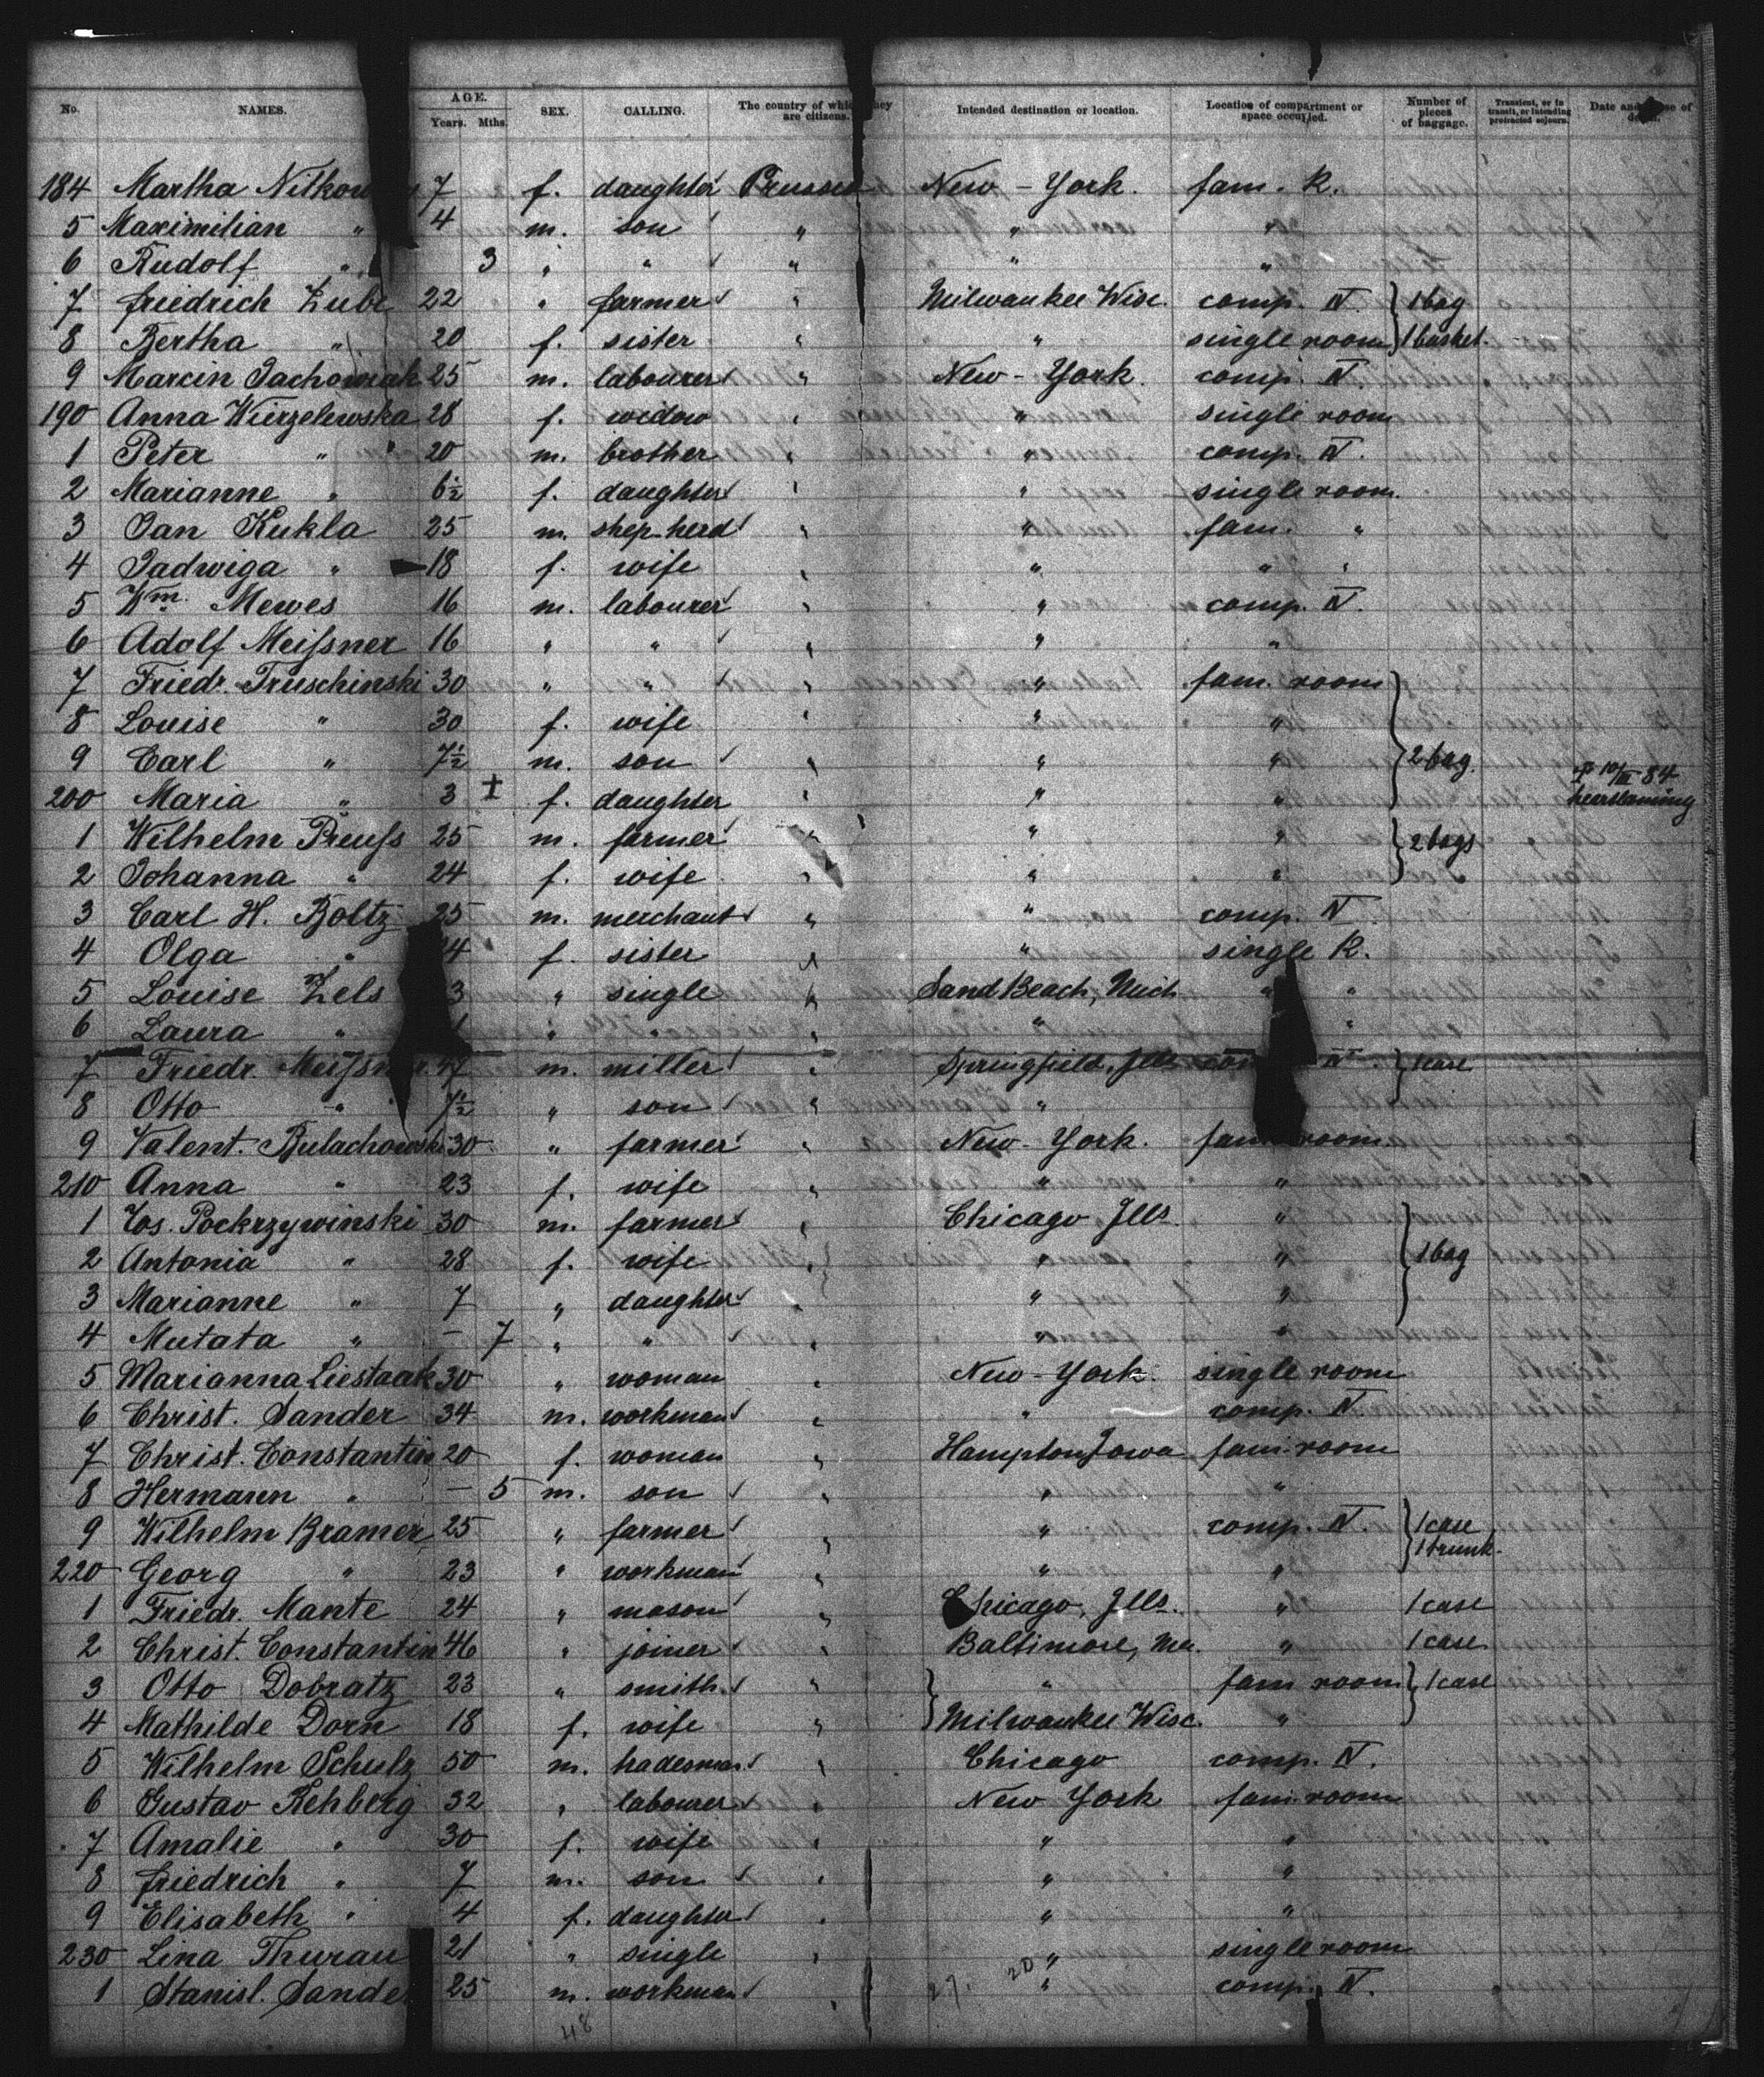 No. NAMES. AGE. Years. Mths. SEX. CALLING. The country of which they are citizens. Intended destination or location. Location of compartment or space occupied. Number of pieces of baggage. Transient, or in transit, or intending protracted sojourn. Date and cause of death.
184 Martha 7 f. daughter Prussia New-York. fam. R.
5 Maximilian " 4 m. son " " "
6 Rudolf " 3 " " " " "
7 Friedrich Zube 22 " farmer " Milwaukee Wisc. comp. IV. 1 bag
8 Bertha " 20 f. sister " " single room 1 basket.
9 Marcin Jachowiak 25 m. labourer " New-York. comp. IV.
190 Anna Wirzelewska 28 f. widow " " single room
1 Peter " " 20 m. brother " " comp. IV.
2 Marianne " 6½ f. daughter " " single room.
3 Jan Kukla 25 m. shepherd " " fam. "
4 Jadwiga " 18 f. wife " " " "
5 Wm. Mewes 16 m. labourer " " comp. IV.
6 Adolf Meißner 16 " " " " "
7 Friedr. Truschinski 30 " " " " fam. room
8 Louise " 30 f. wife " " "
9 Carl " 7½ m. son " " " 2 bag.
200 Maria " 3 ‡ f. daughter " " " 10/III 84
1 Wilhelm Preuß 25 m. farmer " " " 2 bags
2 Johanna " 24 f. wife " " "
3 Carl H. Boltz 25 m. merchant " " comp. IV
4 Olga " 4 f. sister " " single R.
5 Louise Zels 3 " single " Sand Beach, Mich " "
6 Laura " " " " " "
7 Friedr. Meißner 47 m. miller " Springfield, Ills com IV. 1 case
8 Otto " 7½ " son " "
9 Valent. Bulachowski 30 " farmer " New-York. fam room
210 Anna " 23 f. wife " " "
1 Jos. Pockrzywinski 30 m. farmer " Chicago Ills. "
2 Antonia " 28 f. wife " " " 1 bag
3 Marianne " 7 " daughter " " "
4 Mutata " – 7 " " " " "
5 Marianna 30 " woman " New-York. single room
6 Christ. Sander 34 m. workman " " comp. IV.
7 Christ. Constantin 20 f. woman " Hampton Iowa fam. room
8 Hermann " – 5 m. son " " "
9 Wilhelm Bramer 25 " farmer " " comp. IV. 1 case
1 trunk.
220 Georg " 23 " workman " " "
1 Friedr. Mante 24 " mason " Chicago, Ills. " 1 case
2 Christ. Constantin 46 " joiner " Baltimore, Md. " 1 case
3 Otto Dobratz 23 " smith " " fam room 1 case
4 Mathilde Dorn 18 f. wife " Milwaukee Wisc. "
5 Wilhelm Schulz 50 m. tradesman " Chicago comp. IV.
6 Gustav Rehberg 32 " labourer " New York fam. room
7 Amalie " 30 f. wife " " "
8 Friedrich " 7 m. son " " "
9 Elisabeth " 4 f. daughter " " "
230 Lina Thurau 21 " single " " single room
1 Stanisl. Sander 25 m. workman " 29. 20 " comp. IV.
48